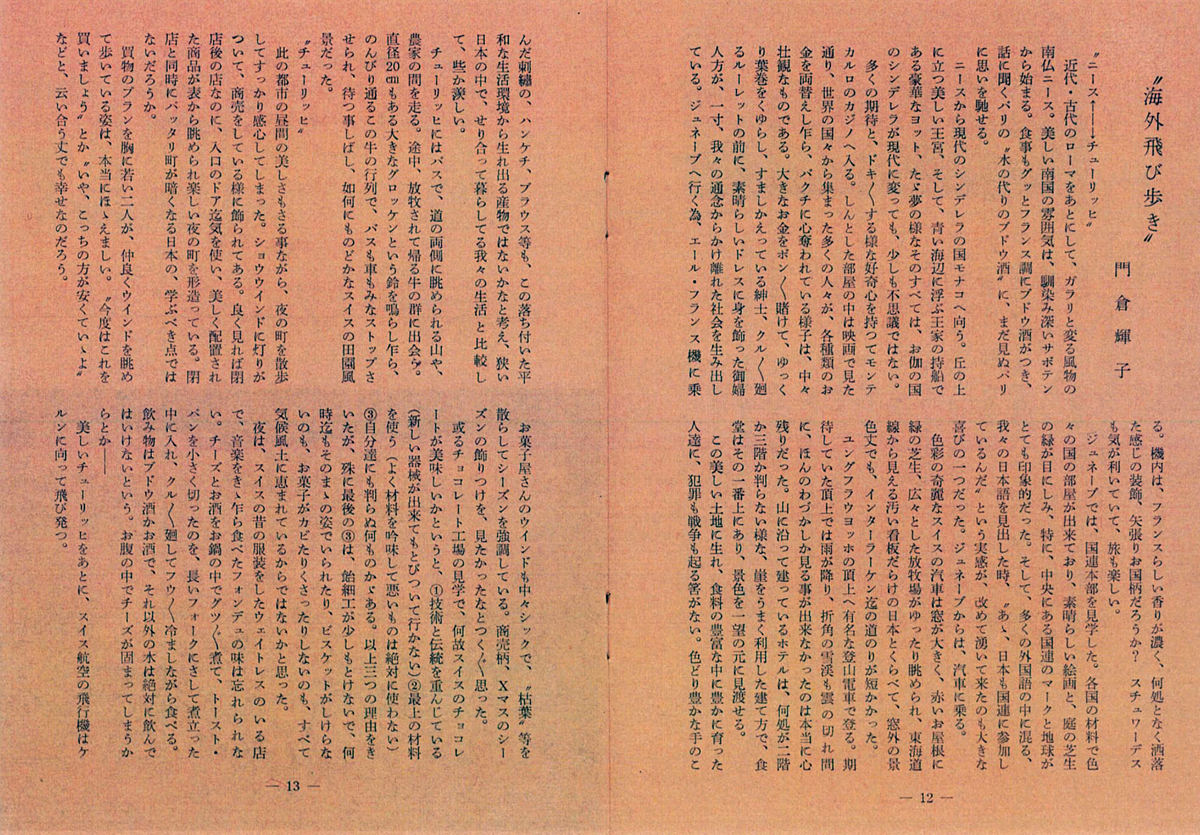 〝海外飛び歩き〟
門倉輝子
〝ニース←―→チューリッヒ〟
近代・古代のローマをあとにして、ガラリと変る風物の
南仏ニース。美しい南国の雰囲気は、馴染み深いサボテン
から始まる。食事もグッとフランス調にブドウ酒がつき、
話に聞くパリの〝水の代りのブドウ酒〟に、まだ見ぬパリ
に思いを馳せる。
ニースから現代のシンデレラの国モナコへ向う。丘の上
に立つ美しい王宮、そして、青い海辺に浮ぶ王家の持船で
ある豪華なヨット、たゞ夢の様なそのすべては、お伽の国
のシンデレラが現代に変っても、少しも不思議ではない。
多くの期待と、ドキ〱する様な好奇心を持つてモンテ
カルロのカジノへ入る。しんとした部屋の中は映画で見た
通り、世界の国々から集まった多くの人々が、各種類のお
金を両替えし乍ら、バクチに心奪われている様子は、中々
壮観なものである。大きなお金をポン〱賭けて、ゆっく
り葉巻をくゆらし、すましかえっている紳士、クル〱廻
るルーレットの前に、素晴らしいドレスに身を飾った御婦
人方が、一寸、我々の通念からかけ離れた社会を生み出し
ている。ジュネーブへ行く為、エール・フランス機に乗
る。機内は、フランスらしい香りが濃く、何処となく洒落
た感じの装飾、矢張りお国柄だろうか？　スチュワーデス
も気が利いていて、旅も楽しい。
ジュネーブでは、国連本部を見学した。各国の材料で色
々の国の部屋が出来ており、素晴らしい絵画と、庭の芝生
の緑が目にしみ、特に、中央にある国連のマークと地球が
とても印象的だった。そして、多くの外国語の中に混る、
我々の日本語を見出した時、〝あゝ、日本も国連に参加し
ているんだ〟という実感が、改めて湧いて来たのも大きな
喜びの一つだった。ジュネーブからは、汽車に乗る。
色彩の奇麗なスイスの汽車は窓が大きく、赤いお屋根に
緑の芝生、広々とした放牧場がゆったり眺められ、東海道
線から見える汚い看板だらけの日本とくらべて、窓外の景
色丈でも、インターラーケン迄の道のりが短かかった。
ユングフラウヨッホの頂上へ有名な登山電車で登る。期
待していた頂上では雨が降り、折角の雪渓も雲の切れ間
に、ほんのわづかしか見る事が出来なかったのは本当に心
残りだった。山に沿って建っているホテルは、何処が二階
か三階か判らない様な、崖をうまく利用した建て方で、食
堂はその一番上にあり、景色を一望の元に見渡せる。
この美しい土地に生れ、食料の豊富な中に豊かに育った
人達に、犯罪も戦争も起る筈がない。色どり豊かな手のこ
― 12 ―
んだ刺繡の、ハンケチ、ブラウス等も、この落ち付いた平
和な生活環境から生れ出る産物ではないかなと考え、狭い
日本の中で、せり合って暮らしてる我々の生活と比較し
て、些か羨しい。
チューリッヒにはバスで、道の両側に眺められる山や、
農家の間を走る。途中、放牧されて帰る牛の群に出会う。
直径20㎝もある大きなグロッケンという鈴を鳴らし乍ら、
のんびり通るこの牛の行列で、バスも車もみなストップさ
せられ、待つ事しばし、如何にものどかなスイスの田園風
景だった。
〝チューリッヒ〟
此の都市の昼間の美しさもさる事ながら、夜の町を散歩
してすっかり感心してしまった。ショウウインドに灯りが
ついて、商売をしている様に飾られてある。良く見れば閉
店後の店なのに、入口のドア迄気を使い、美しく配置され
た商品が表から眺められ楽しい夜の町を形造っている。閉
店と同時にバッタリ町が暗くなる日本の、学ぶべき点では
ないだろうか。
買物のプランを胸に若い二人が、仲良くウインドを眺め
て歩いている姿は、本当にほゝえましい。〝今度はこれを
買いましょう〟とか〝いや、こっちの方が安くていゝよ〟
などと、云い合う丈でも幸せなのだろう。
お菓子屋さんのウインドも中々シックで、〝枯葉〟等を
散らしてシーズンを強調している。商売柄、Xマスのシー
ズンの飾りつけを、見たかったなとつく〲思った。
或るチョコレート工場の見学で、何故スイスのチョコレ
ートが美味しいかというと、①技術と伝統を重んじている
（新しい器械が出来てもとびついて行かない）②最上の材料
を使う（よく材料を吟味して悪いものは絶対に使わない）
③自分達にも判らぬ何ものかゞある。以上三つの理由をき
いたが、殊に最後の③は、飴細工が少しもとけないで、何
時迄もそのまゝの姿でいられたり、ビスケットがしけらな
いのも、お菓子がカビたりくさったりしないのも、すべて
気候風土に恵まれているからではないかと思った。
夜は、スイスの昔の服装をしたウェイトレスのいる店
で、音楽をきゝ乍ら食べたフォンデュの味は忘れられな
い。チーズとお酒をお鍋の中でグツ〱煮て、トースト・
パンを小さく切ったのを、長いフォークにさして煮立った
中に入れ、クル〱廻してフウ〱冷ましながら食べる。
飲み物はブドウ酒かお酒で、それ以外の水は絶対に飲んで
はいけないという。お腹の中でチーズが固まってしまうか
らとか――
美しいチューリッヒをあとに、スイス航空の飛行機はケ
ルンに向って飛び発つ。
― 13 ―